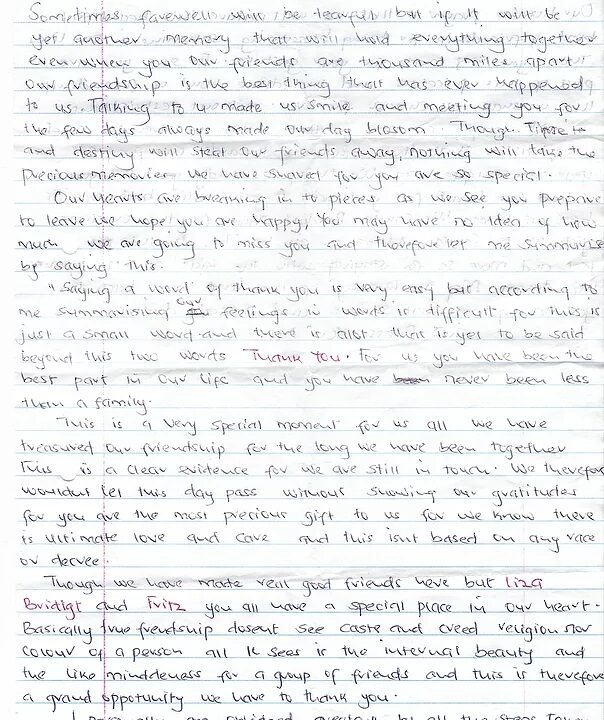 Sometimes farewell will be tearful but if it will be
yet another memory that will hold everything together
even when you our friends are thousand miles apart
our friendship is the best thing that has ever happened
to us. Talking to u made us smile and meeting you for
the few days always made our day blosom. Though Time
and destiny will steal our friends away, nothing will take the
precious memories we have shared for you are so special.
Our hearts are breaking in to pieces as we see you prepare
to leave we hope you are happy, You may have no idea of how
much we are going to miss you and therefore let me summarise
by saying this.
"Saying a word of thank you is very easy but according to
me summarising our feelings in words is difficult for this is
just a small word and there is alot that is yet to be said
beyond this two words Thank You. For us you have been the
best part in our life and you have been never been less
than a family.
This is a very special moment for us all we have
treasured our friendship for the long we have been together
This is a clear evidence for we are still in touch. We therefore
wouldnt let this day pass without showing our gratitudes
for you are the most precious gift to us for we know there
is ultimate love and care and this isnt based on any race
or decree.
Though we have made real good friends here but Liza
Bridigt and Fritz you all have a special place in our heart.
Basically true frendship dosent see caste and creed religion nor
colour of a person all it sees is the internal beauty and
the like mindedness for a group of friends and this is therefore
a grand oppotunity we have to thank you.